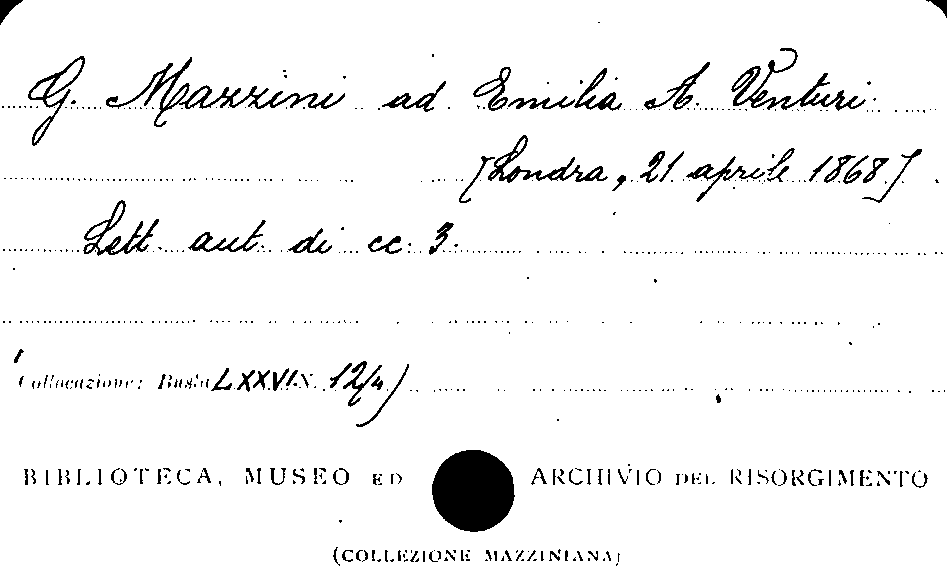 G. Mazzini ad Emilia A. Venturi.
[Londra, 21 aprile 1868]
Lett. aut. di cc. 3.
Collocazione: Busta LXXVI N. 12/4)
BIBLIOTECA, MUSEO ED ARCHIVIO DEL RISORGIMENTO
(COLLEZIONE MAZZINIANA)